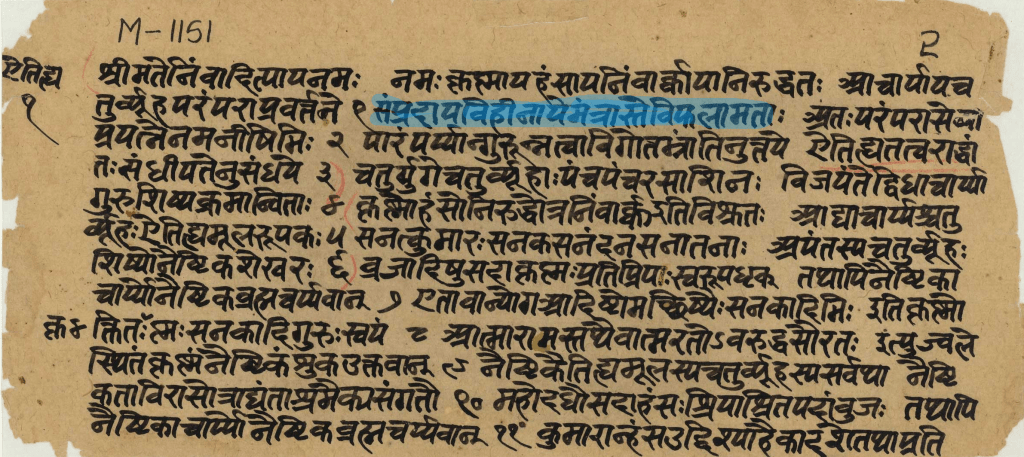 M-1151
२
ऐतिह्य श्रीमतेनिंवादित्यायनमः नमः कृष्णाय हंसायनिंवार्क्कायानिरुद्धतः आचार्यायच
१ तुर्व्यूहपरंपराप्रवर्त्तने १ संप्रदायविहीनायेमंत्रास्तेविफलामताः अतः परंपरासेव्या
प्रयत्नेनमनीषिभिः २ पारंपर्य्यान्गुरून्नत्वा तिनुत्तये ऐतिह्यतत्वराद्धां
तः संधीयतेनुसंधये ३ चतुर्युगेचतुर्व्यूहाः पंचपंचरसाशिनः विजयंतेद्विधाचार्य्या
गुरुशिष्यक्रमान्विताः ४ कृष्णोहंसोनिरुद्धोत्रनिंवार्क्कइतिविश्रुतः आद्याचार्य्यश्चतु
र्व्यूहः ऐतिह्यमूलरूपकः ५ सनत्कुमारः सनकसनंदनसनातनाः अयंतस्यचतुर्व्यूहः
शिष्योनैष्टिकशेखरः ६ व्रजादिषुसदाकृष्णः प्रतिप्रियः स्वरूपधृक् तथापिनैष्टिका
चार्य्योनैष्टिकब्रह्मचर्य्यवान् ७ एतावान्योगआदिष्टोमच्छिष्यैः सनकादिभिः इतिकृष्णो
क्त४ क्तितः कृष्णः सनकादिगुरुः स्वयं ८ आत्मारामस्तथैवात्मरतोऽवरुद्धसौरतः इत्युज्वले
स्थितंकृष्णंनैष्टिकंशुकउक्तवान् ९ नैष्टिकैतिह्यमूलस्यचतुर्व्यूहस्यसर्वथा नैष्टि
कताविरासोत्राद्यंताश्रमैक्यसंगतौ १० महोदधौसदाहंसः श्रियाश्रितपदांवुजः तथापि
नैष्टिकाचार्य्योनैष्टिकब्रह्मचर्य्यवान् ११ कुमारान्हंसउद्दिश्य तथाप्रति